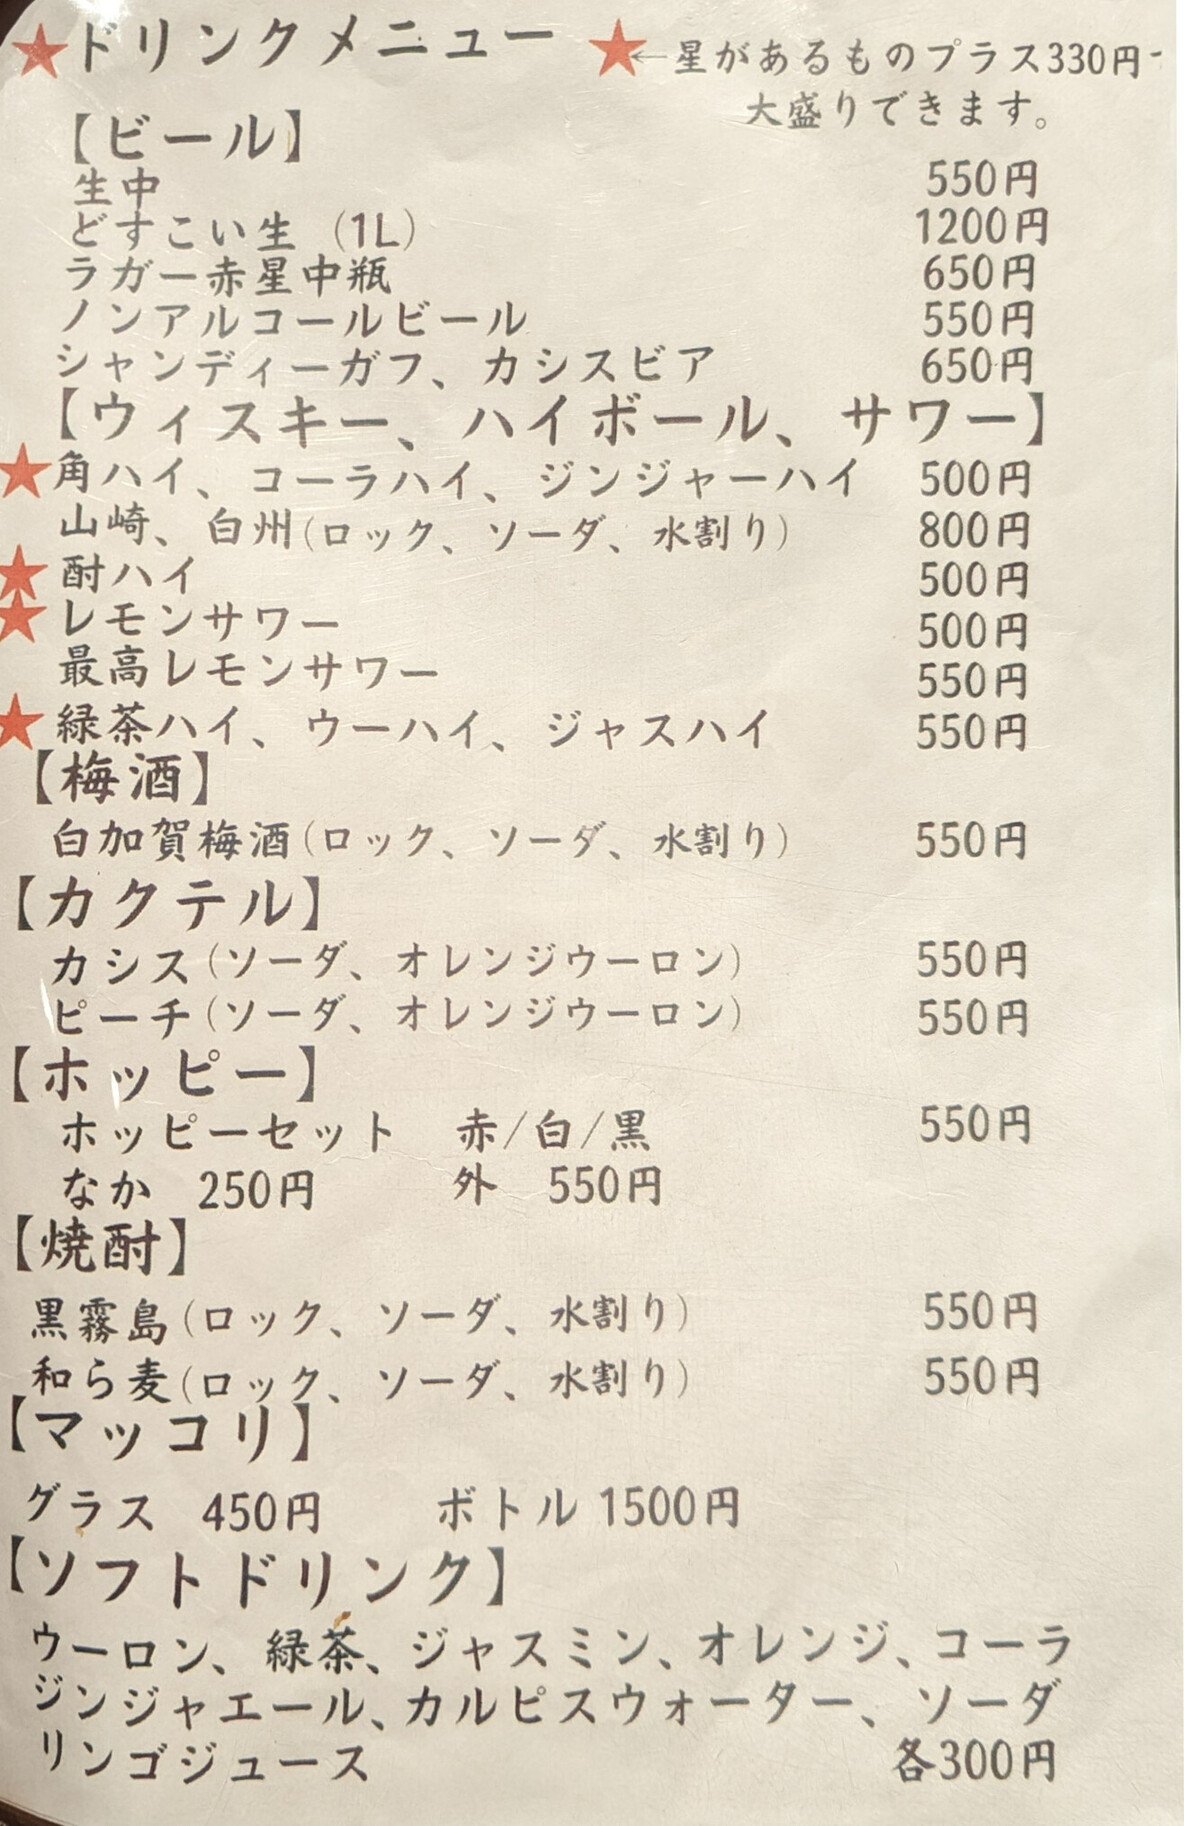 ★ドリンクメニュー ★←星があるものプラス330円で
大盛りできます。
【ビール】
生中 550円
どすこい生 (1L) 1200円
ラガー赤星中瓶 650円
ノンアルコールビール 550円
シャンディーガフ、カシスビア 650円
【ウィスキー、ハイボール、サワー】
★角ハイ、コーラハイ、ジンジャーハイ 500円
山崎、白州(ロック、ソーダ、水割り) 800円
★酎ハイ 500円
★レモンサワー 500円
最高レモンサワー 550円
★緑茶ハイ、ウーハイ、ジャスハイ 550円
【梅酒】
白加賀梅酒(ロック、ソーダ、水割り) 550円
【カクテル】
カシス(ソーダ、オレンジウーロン) 550円
ピーチ(ソーダ、オレンジウーロン) 550円
【ホッピー】
ホッピーセット 赤/白/黒 550円
なか 250円 外 550円
【焼酎】
黒霧島(ロック、ソーダ、水割り) 550円
和ら麦(ロック、ソーダ、水割り) 550円
【マッコリ】
グラス 450円 ボトル 1500円
【ソフトドリンク】
ウーロン、緑茶、ジャスミン、オレンジ、コーラ
ジンジャエール、カルピスウォーター、ソーダ
リンゴジュース 各300円